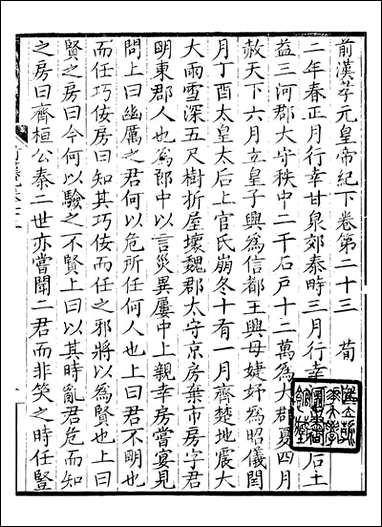 前漢孝元皇帝紀下卷第二十三 荀
二年春正月行幸甘泉郊泰時三月行幸 后土
益三河郡大守秩中二千石戶十二萬爲大郡夏四月
赦天下六月立皇子興爲信都王興母婕妤爲昭儀閏
月丁酉太皇太后上官氏崩冬十有一月齊楚地震大
大雨雪深五尺樹折屋壞魏郡太守京房棄市房字君
明東郡人也爲郎中以言災異屢中上親幸房嘗宴見
問上曰幽厲之君何以危所任何人也上曰君不明也
而任巧佞房曰知其巧佞而任之邪將以爲賢也上曰
賢之房曰今何以驗之不賢上曰以其時亂君危而知
之房曰齊桓公秦二世亦嘗聞二君而非笑之時任豎